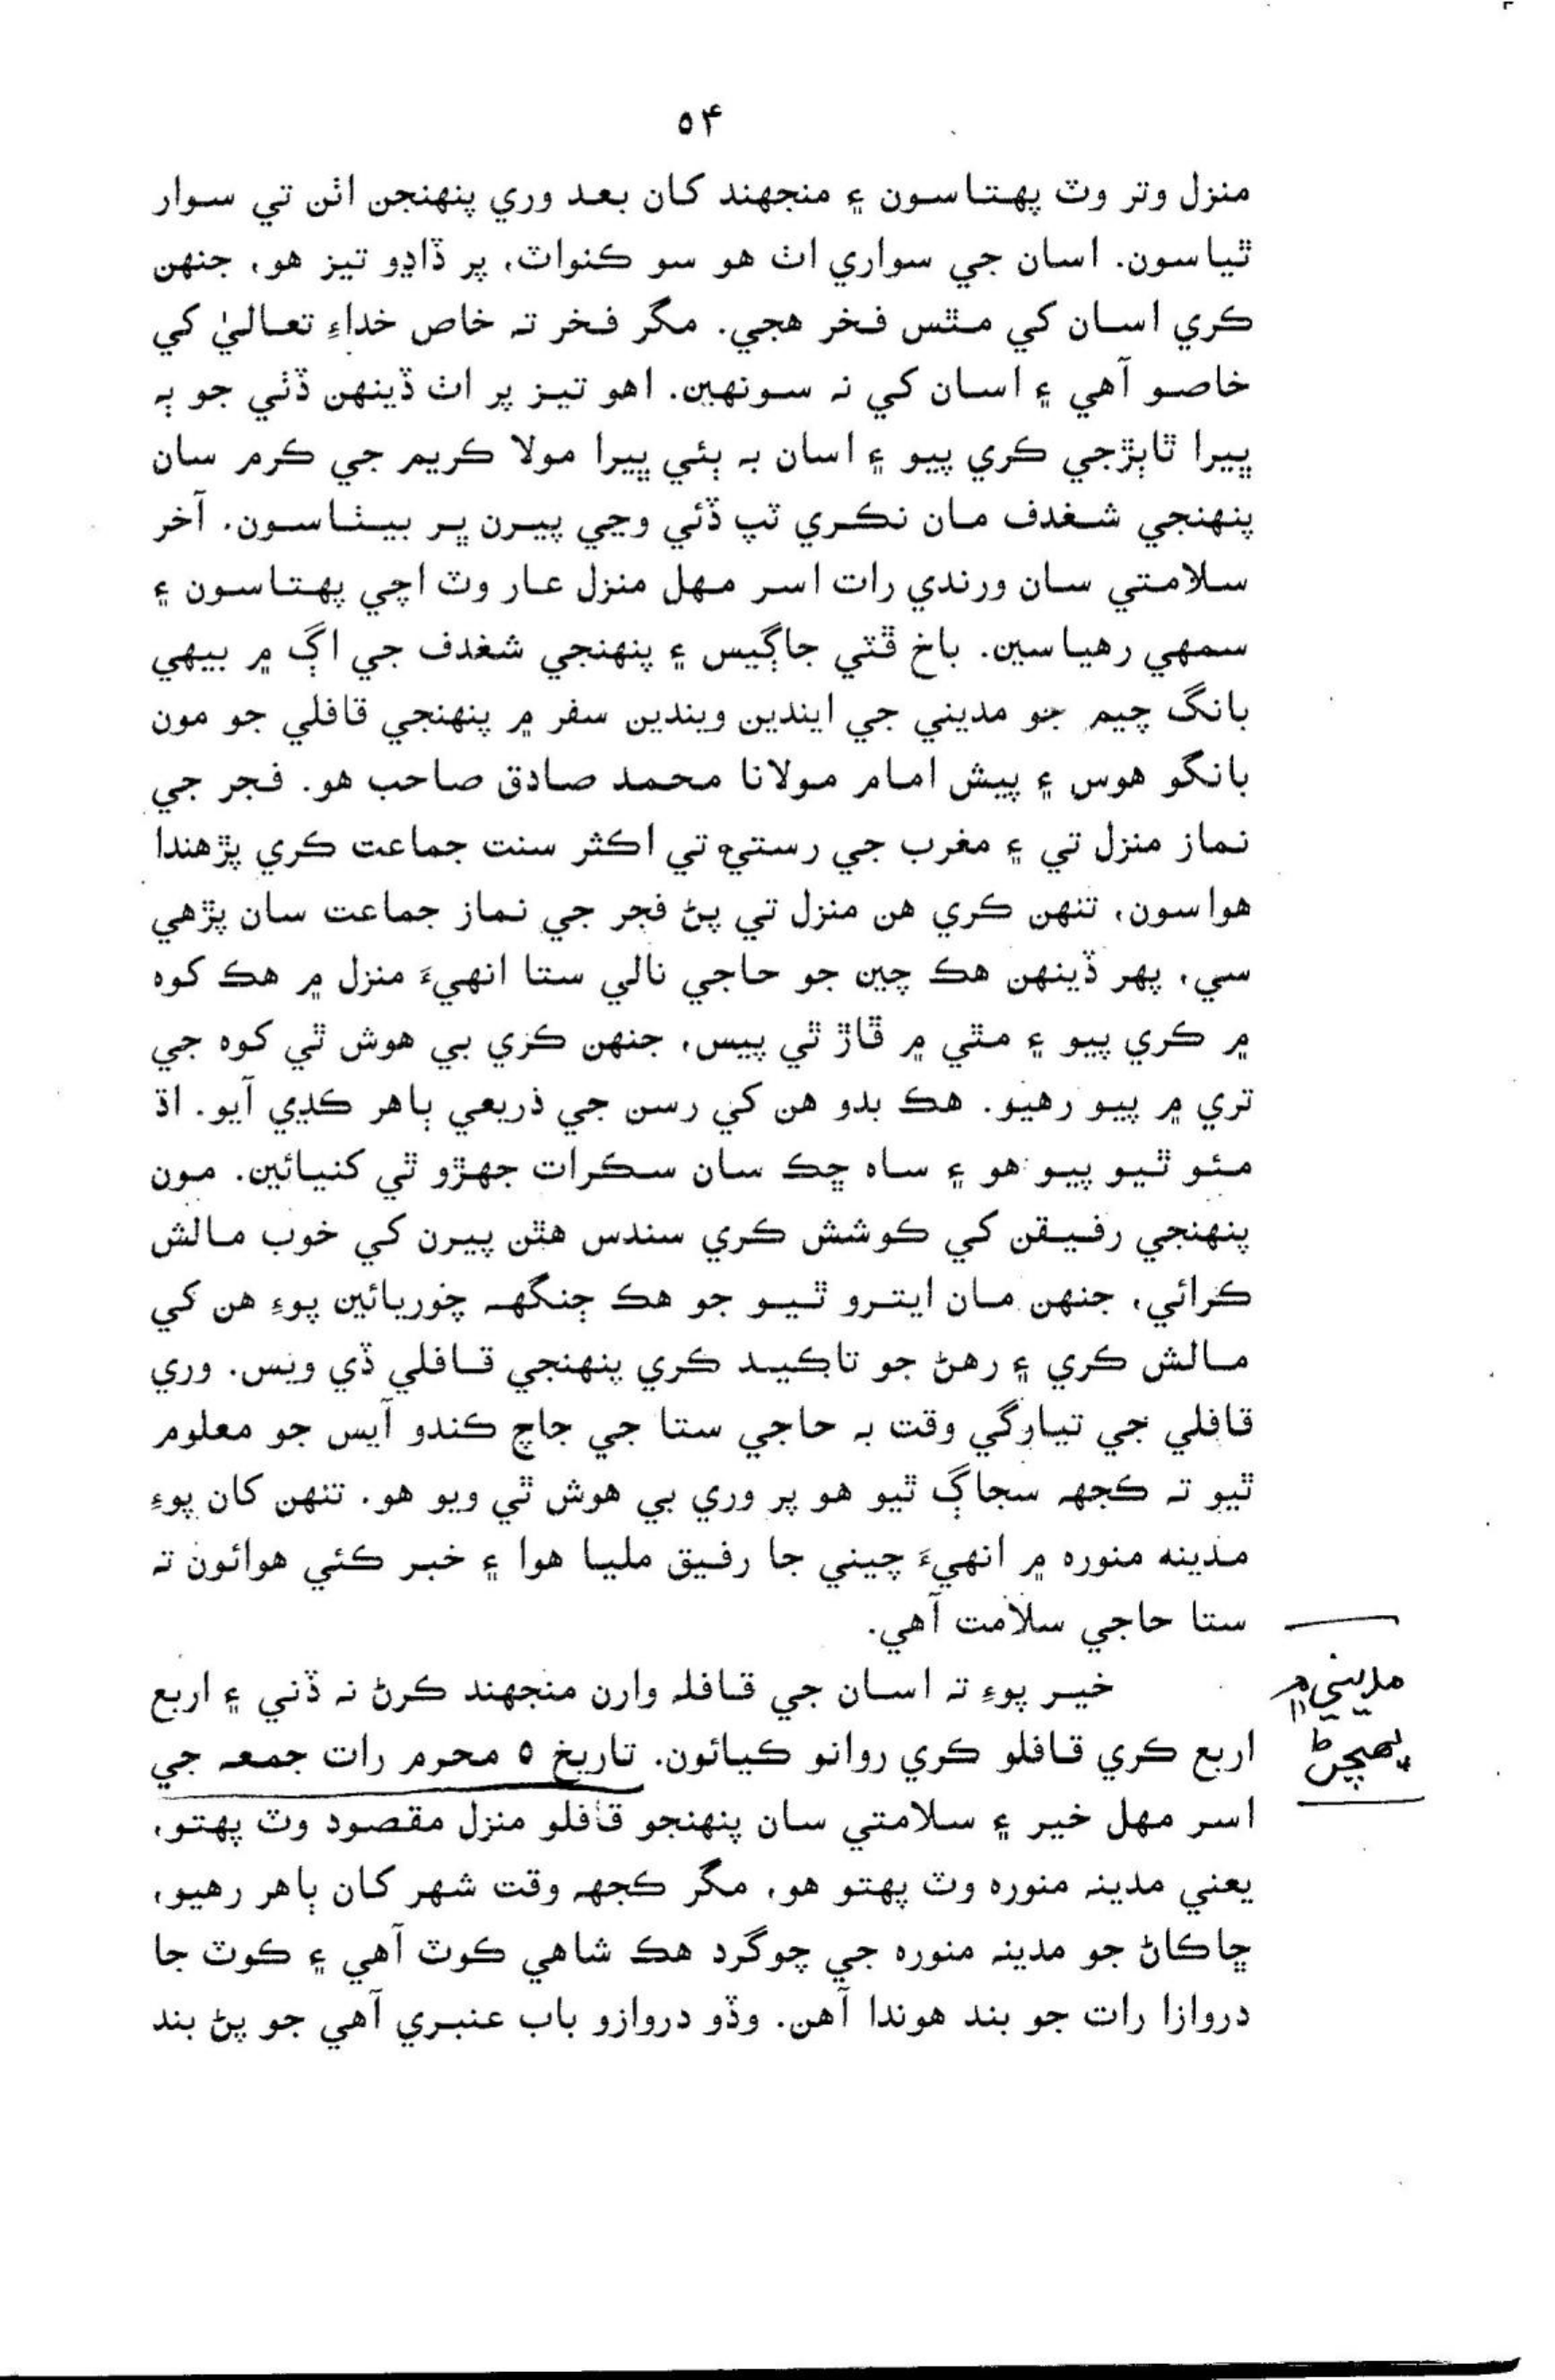 ۵۴
منزل وتر وٽ پهتاسون ۽ منجهند کان بعد وري پنهنجن اٺن تي سوار
ٿياسون. اسان جي سواري اٺ هو سو ڪنواٽ، پر ڏاڍو تيز هو، جنهن
ڪري اسان کي مٿس فخر هجي. مگر فخر تہ خاص خداءِ تعاليٰ کي
خاصو آهي ۽ اسان کي نہ سونهين. اهو تيز پر اٺ ڏينهن ڏٺي جو ٻہ
ڀيرا ٿاٻڙجي ڪري پيو ۽ اسان بہ ٻئي ڀيرا مولا ڪريم جي ڪرم سان
پنهنجي شغدف مان نڪري ٽپ ڏئي وڃي پيرن ڀر بيٺاسون. آخر
سلامتي سان ورندي رات اسر مهل منزل عار وٽ اچي پهتاسون ۽
سمهي رهياسين. باخ ڦٽي جاڳيس ۽ پنهنجي شغدف جي اڳ ۾ بيهي
بانگ چيم جو مديني جي ايندين ويندين سفر ۾ پنهنجي قافلي جو مون
بانگو هوس ۽ پيش امام مولانا محمد صادق صاحب هو. فجر جي
نماز منزل تي ۽ مغرب جي رستي تي اڪثر سنت جماعت ڪري پڙهندا
هواسون، تنهن ڪري هن منزل تي پڻ فجر جي نماز جماعت سان پڙهي
سي، پهر ڏينهن هڪ چين جو حاجي نالي ستا انهيءَ منزل ۾ هڪ کوه
۾ ڪري پيو ۽ مٿي ۾ ڦاڙ ٿي پيس، جنهن ڪري بي هوش ٿي کوه جي
تري ۾ پيو رهيو. هڪ بدو هن کي رسن جي ذريعي ٻاهر ڪڍي آيو. اڌ
مئو ٿيو پيو هو ۽ ساه ڇڪ سان سڪرات جهڙو ٿي کنيائين. مون
پنهنجي رفيقن کي ڪوشش ڪري سندس هٿن پيرن کي خوب مالش
ڪرائي، جنهن مان ايترو ٿيو جو هڪ ڄنگهہ چوريائين پوءِ هن کي
مالش ڪري ۽ رهڻ جو تاڪيد ڪري پنهنجي قافلي ڏي ويس. وري
قافلي جي تيارگي وقت بہ حاجي ستا جي جاچ ڪندو آيس جو معلوم
ٿيو تہ ڪجهہ سجاڳ ٿيو هو پر وري بي هوش ٿي ويو هو. تنهن کان پوءِ
مدينه منوره ۾ انهيءَ چيني جا رفيق مليا هوا ۽ خبر ڪئي هوائون تہ
ستا حاجي سلامت آهي.
خير پوءِ تہ اسان جي قافلہ وارن منجهند ڪرڻ نہ ڏني ۽ اربع
مديني ۾
اربع ڪري قافلو ڪري روانو ڪيائون. تاريخ ٥ محرم رات جمعہ جي
پهچڻ
اسر مهل خير ۽ سلامتي سان پنهنجو قافلو منزل مقصود وٽ پهتو،
يعني مدينہ منوره وٽ پهتو هو، مگر ڪجهہ وقت شهر کان ٻاهر رهيو،
ڇاڪاڻ جو مدينہ منوره جي چوگرد هڪ شاهي ڪوٽ آهي ۽ ڪوٽ جا
دروازا رات جو بند هوندا آهن. وڏو دروازو باب عنبري آهي جو پڻ بند